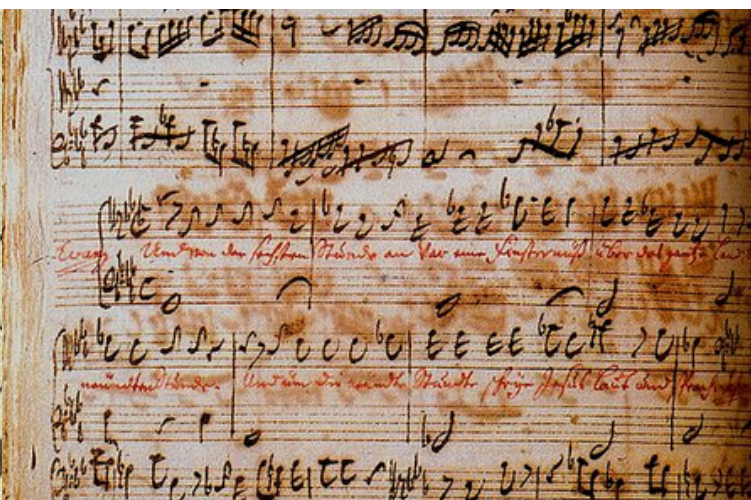 Evang. Und von der sechsten Stunde an war eine Finsternuß über das gantze Land
neundten Stunde. Und um die neundte Stunde schrye Jesus laut und sprach